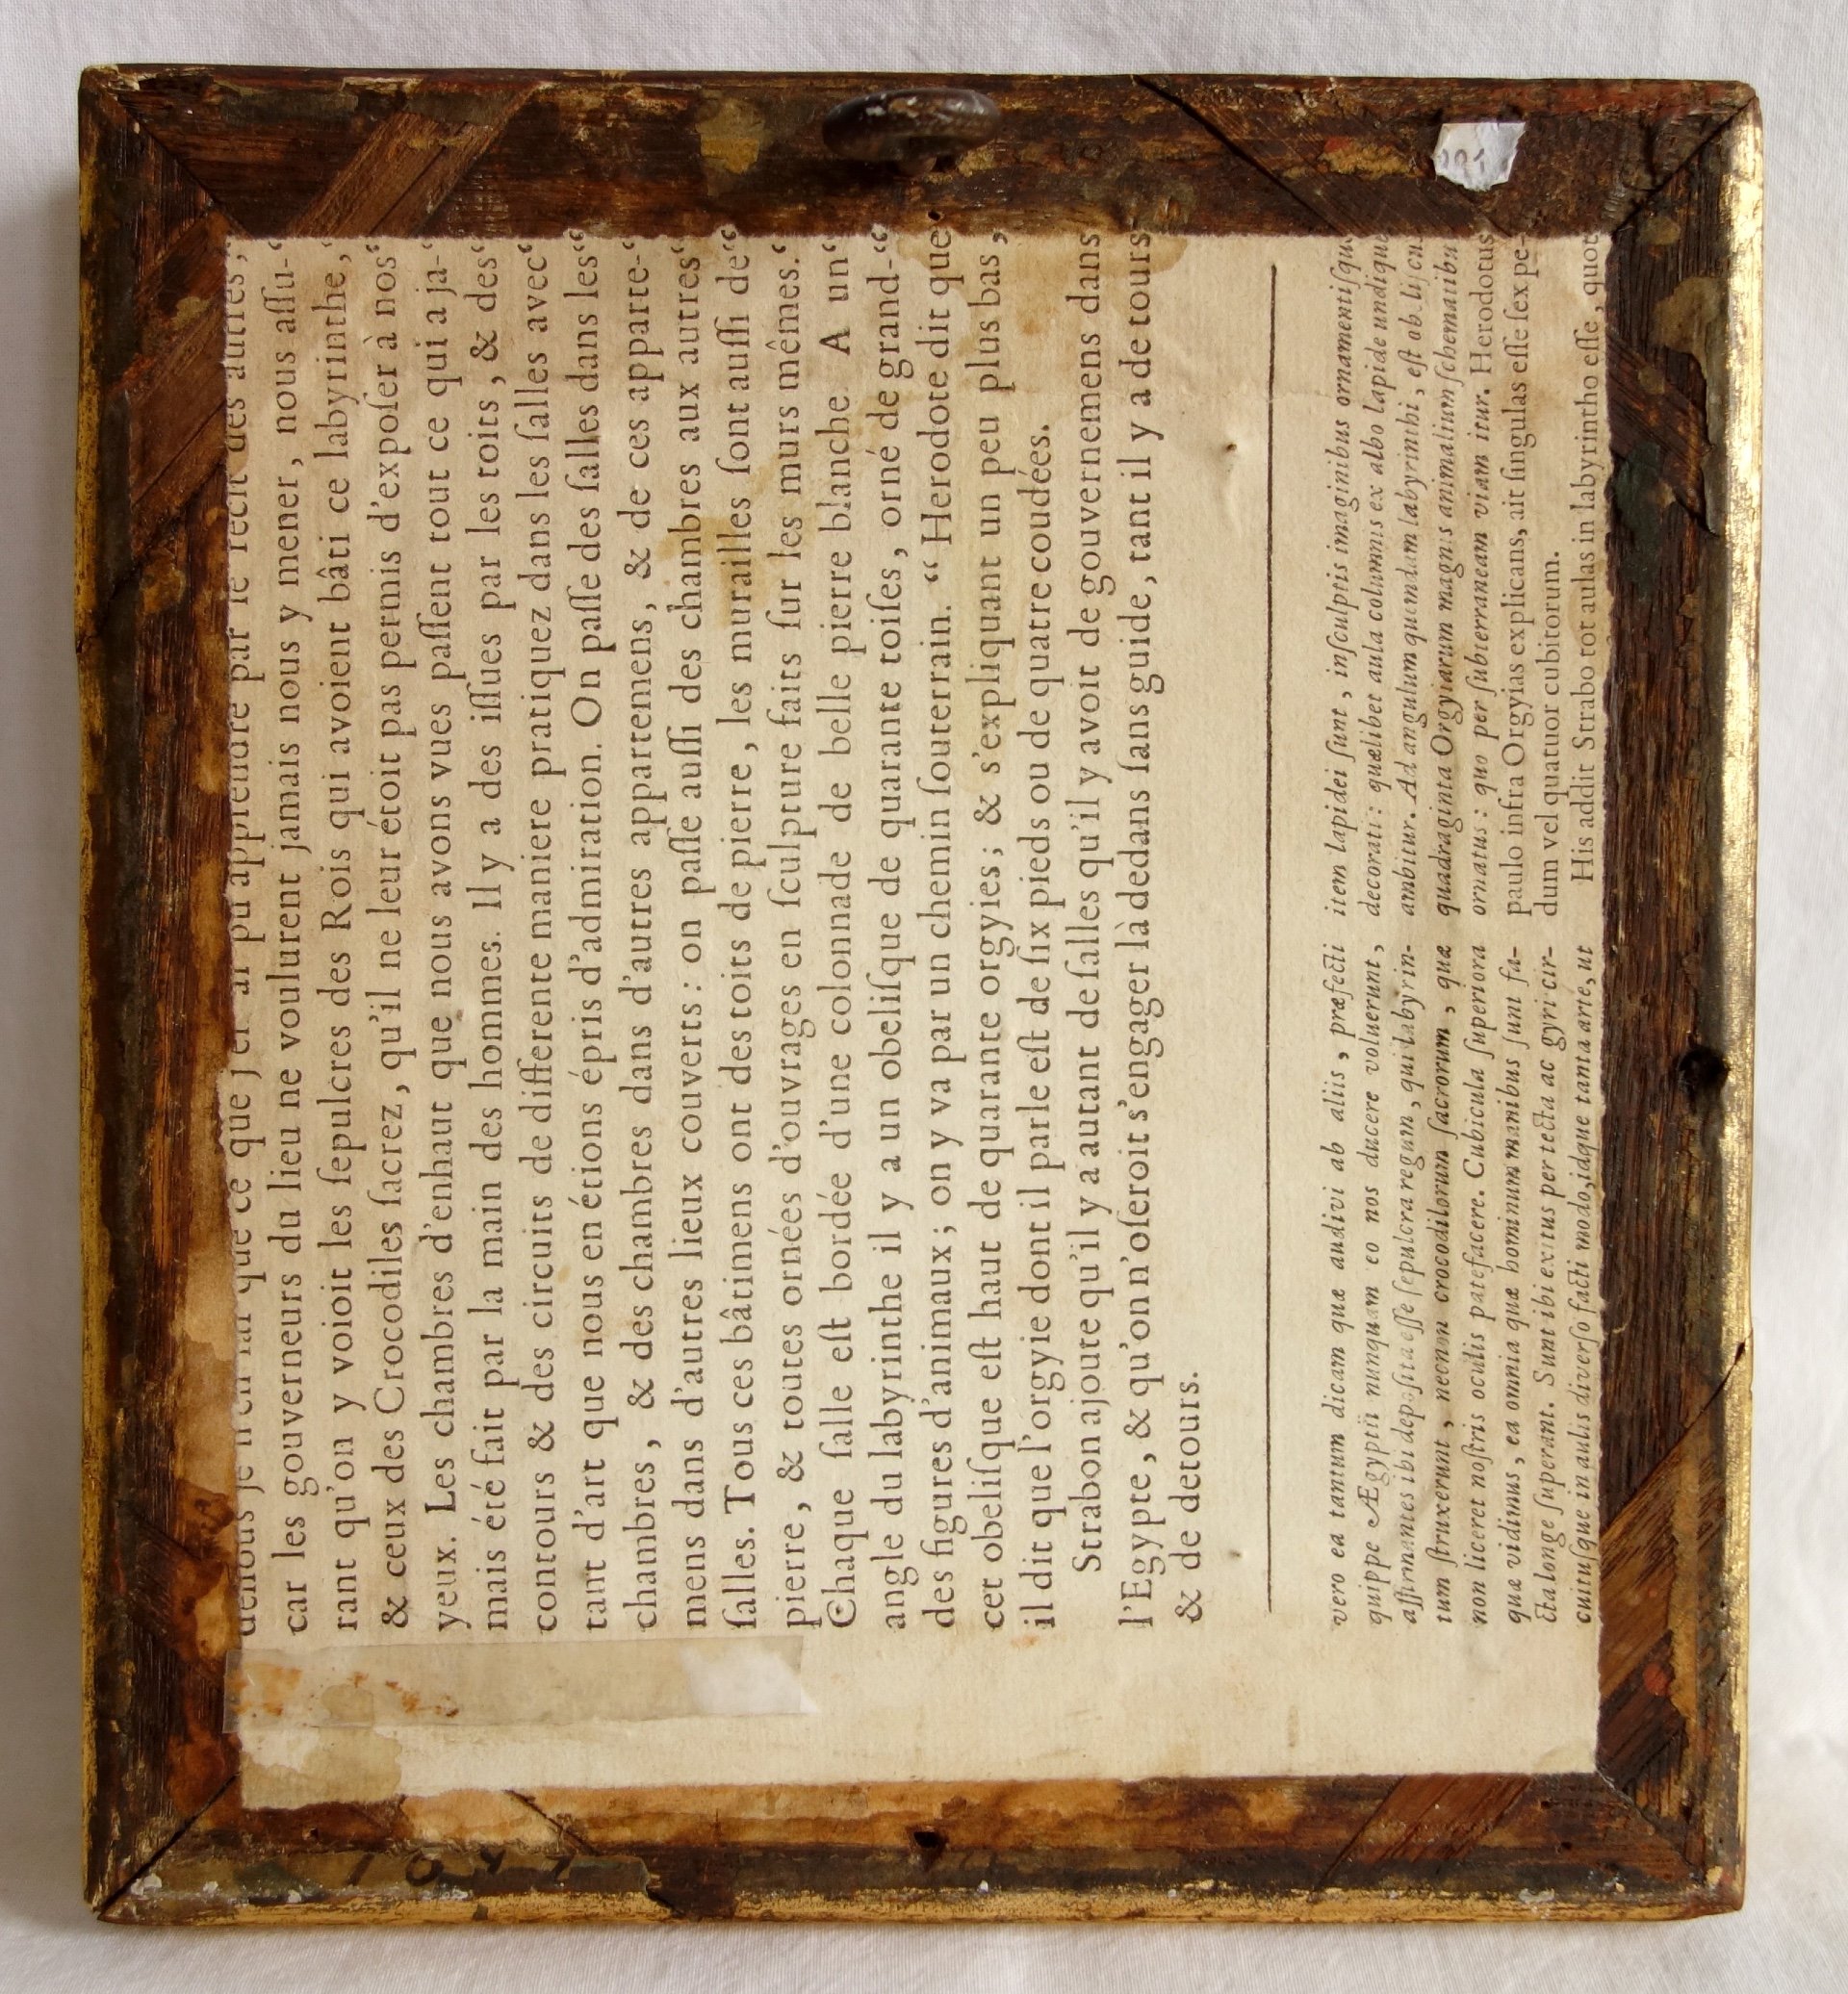 dehors je n'en sai que ce que j'en ai pu apprendre par le récit des autres,
car les gouverneurs du lieu ne voulurent jamais nous y mener, nous aſſu-“
rant qu'on y voioit les ſepulcres des Rois qui avoient bâti ce labyrinthe,“
& ceux des Crocodiles ſacrez, qu'il ne leur étoit pas permis d'expoſer à nos“
yeux. Les chambres d'enhaut que nous avons vues paſſent tout ce qui a ja-“
mais été fait par la main des hommes. Il y a des iſſues par les toits, & des“
contours & des circuits de differente maniere pratiquez dans les ſalles avec“
tant d'art que nous en étions épris d'admiration. On paſſe des ſalles dans les“
chambres, & des chambres dans d'autres appartemens, & de ces apparte-“
mens dans d'autres lieux couverts : on paſſe auſſi des chambres aux autres“
ſalles. Tous ces bâtimens ont des toits de pierre, les murailles ſont auſſi de“
pierre, & toutes ornées d'ouvrages en ſculpture faits ſur les murs mêmes.“
Chaque ſalle eſt bordée d'une colonnade de belle pierre blanche. A un“
angle du labyrinthe il y a un obeliſque de quarante toiſes, orné de grand-“
des figures d'animaux; on y va par un chemin ſouterrain. “ Herodote dit que
cet obeliſque eſt haut de quarante orgyies; & s'expliquant un peu plus bas,
il dit que l'orgyie dont il parle eſt de ſix pieds ou de quatre coudées.
Strabon ajoute qu'il y a autant de ſalles qu'il y avoit de gouvernemens dans
l'Egypte, & qu'on n'oſeroit s'engager là dedans ſans guide, tant il y a de tours
& de detours.
vero ea tantum dicam quæ audivi ab aliis, præfecti
quippe Ægyptii nunquam eo nos ducere voluerunt,
aſſirmantes ibi depoſita eſſe ſepulcra regum, qui labyrin-
tum ſtruxerunt, necnon crocodilorum ſacrorum, quæ
non liceret noſtris oculis patefacere. Cubicula ſuperiora
quæ vidimus, ea omnia quæ hominum manibus ſunt fa-
cta longe ſuperant. Sunt ibi exitus per tecta ac gyri cir-
cuituſque in aulis diverſo facti modo, idque tanta arte, ut
item lapidei ſunt, inſculptis imaginibus ornamentiſque
decorati : quælibet aula columnis ex albo lapide undique
ambitur. Ad angulum quemdam labyrinthi, eſt obeliſcus
quadraginta Orgyiarum magnis animalium ſchematibus
ornatus : quo per ſubterraneam viam itur. Herodotus
paulo infra Orgyias explicans, ait ſingulas eſſe ſex pe-
dum vel quatuor cubitorum.
His addit Strabo tot aulas in labyrintho eſſe, quot